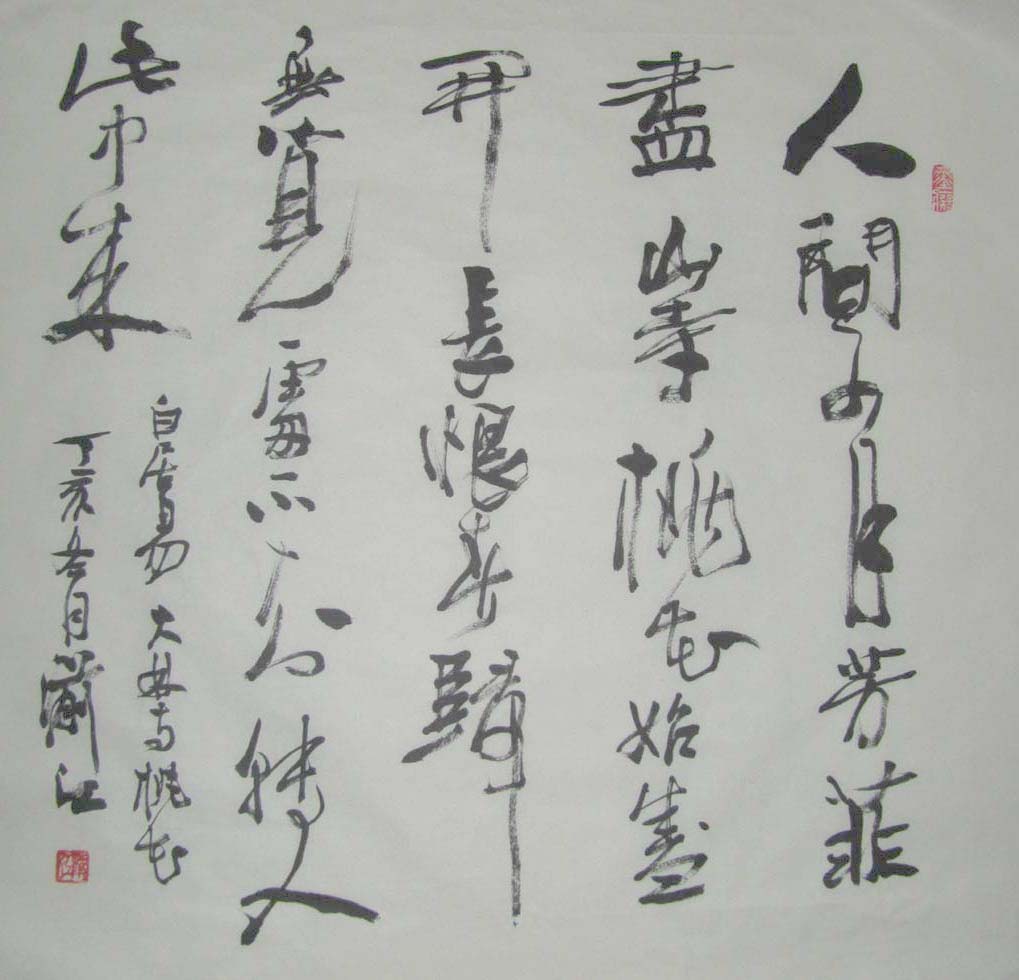 人間四月芳菲
盡山寺桃花始盛
開長恨春歸
無覓處不知轉入
此中來
白居易大林寺桃花
丁亥冬月江